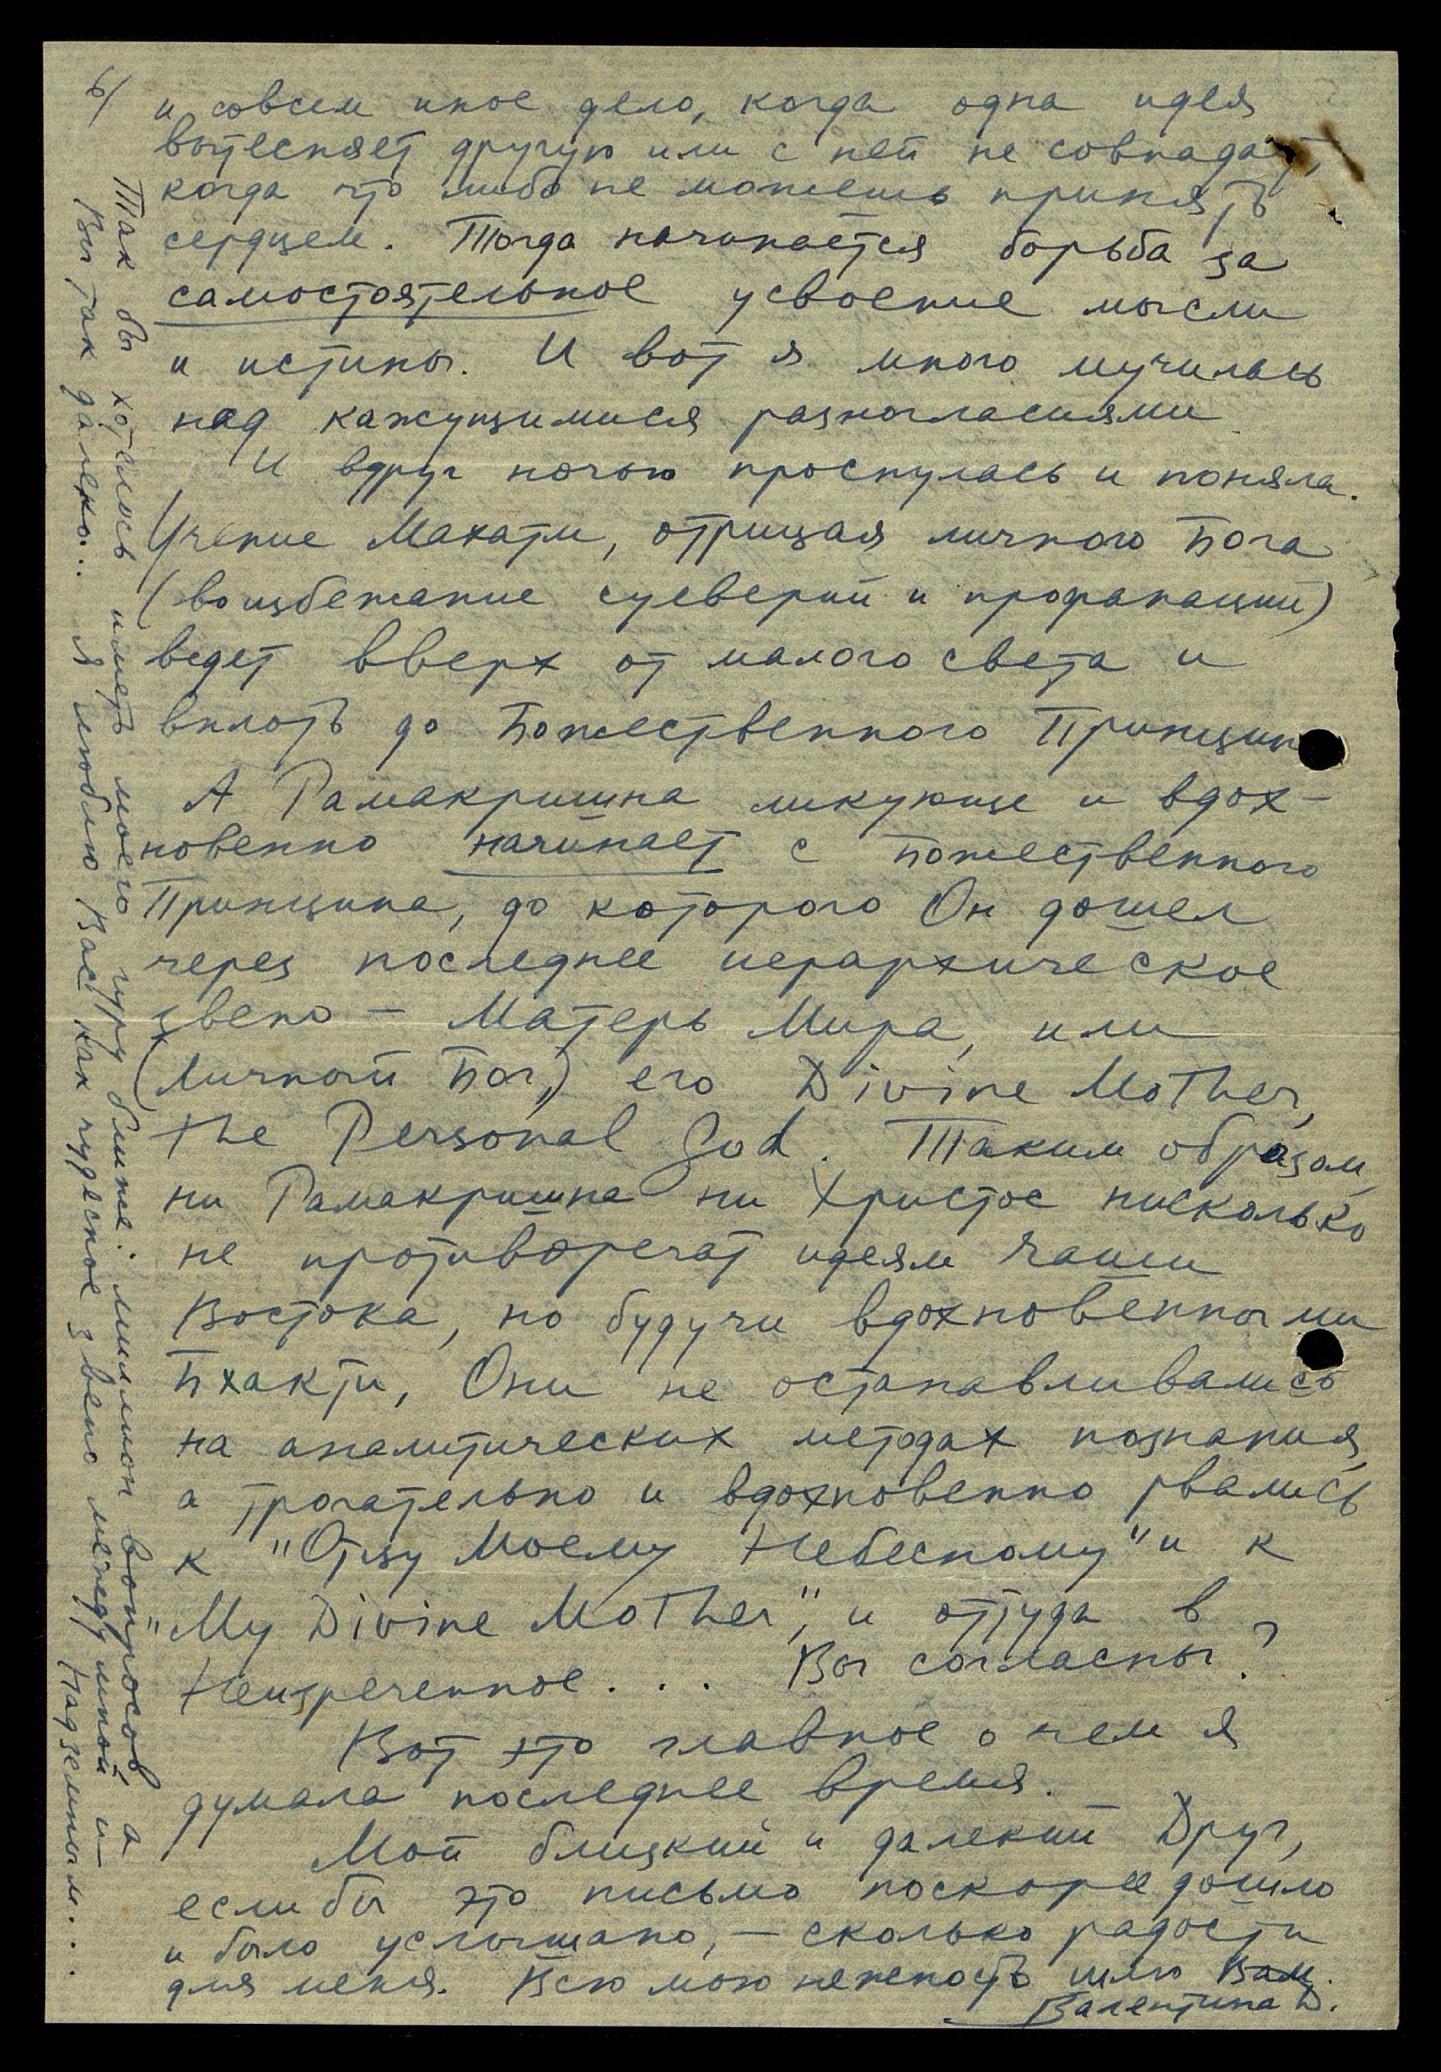 6/
и совсем иное дело, когда одна идея
вытесняет другую или с ней не совпадает,
когда что либо не можешь принять
сердцем. Тогда начинается борьба за
самостоятельное усвоение мысли
и истины. И вот я много мучилась
над кажущимися разногласиями
И вдруг ночью проснулась и поняла.
Учение Махатм, отрицая личного Бога
(во избежание суеверий и профанации)
ведет вверх от малого света и
вплоть до Божественного Принципа
А Рамакришна ликующе и вдох-
новенно начинает с Божественного
Принципа, до которого Он дошел
через последнее иерархическое
звено — Матерь Мира, или
(Личный Бог,) его Divine Mother,
the Personal God. Таким образом,
ни Рамакришна ни Христос нисколько
не противоречат идеям Чаши
Востока, но будучи вдохновенными
Бхакти, Они не останавливались
на аналитических методах познания,
а трогательно и вдохновенно рвались
к "Отцу Моему Небесному" и к
"My Divine Mother", и оттуда в
Неизреченное... Вы согласны?
Вот это главное о чем я
думала последнее время.
Мой близкий и далекий Друг,
если бы это письмо поскорее дошло
и было услышано, — сколько радости
для меня. Всю мою нежность шлю Вам.
Валентина D.
Так бы хотелось иметь моего гуру ближе: миллион вопросов, а
Вы так далеко... Я люблю Вас как чудесное звено между мной и
Надземным...